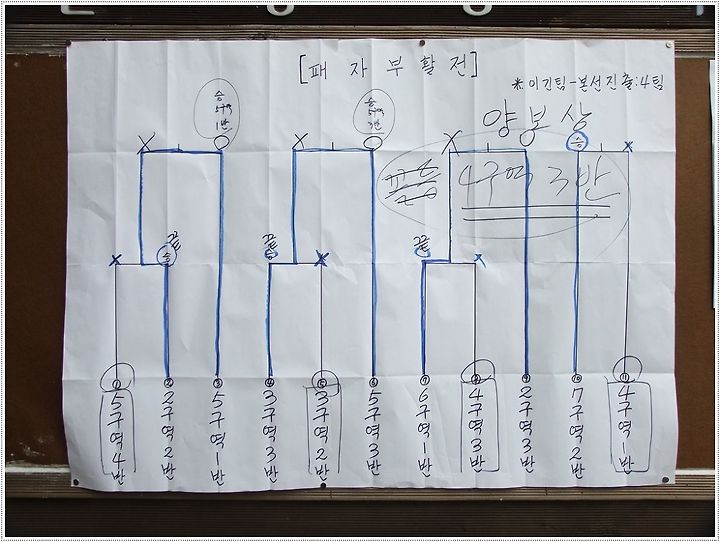 [패자부활전]
※이긴팀-본선진출:4팀
양보상
승 5구역 1반
승 5구역 3반
승
4구역 3반
끝
승
끝
끝
① 5구역 4반
② 2구역 2반
③ 5구역 1반
④ 3구역 3반
⑤ 3구역 2반
⑥ 5구역 3반
⑦ 6구역 1반
⑧ 4구역 3반
⑨ 2구역 3반
⑩ 7구역 2반
⑪ 4구역 1반